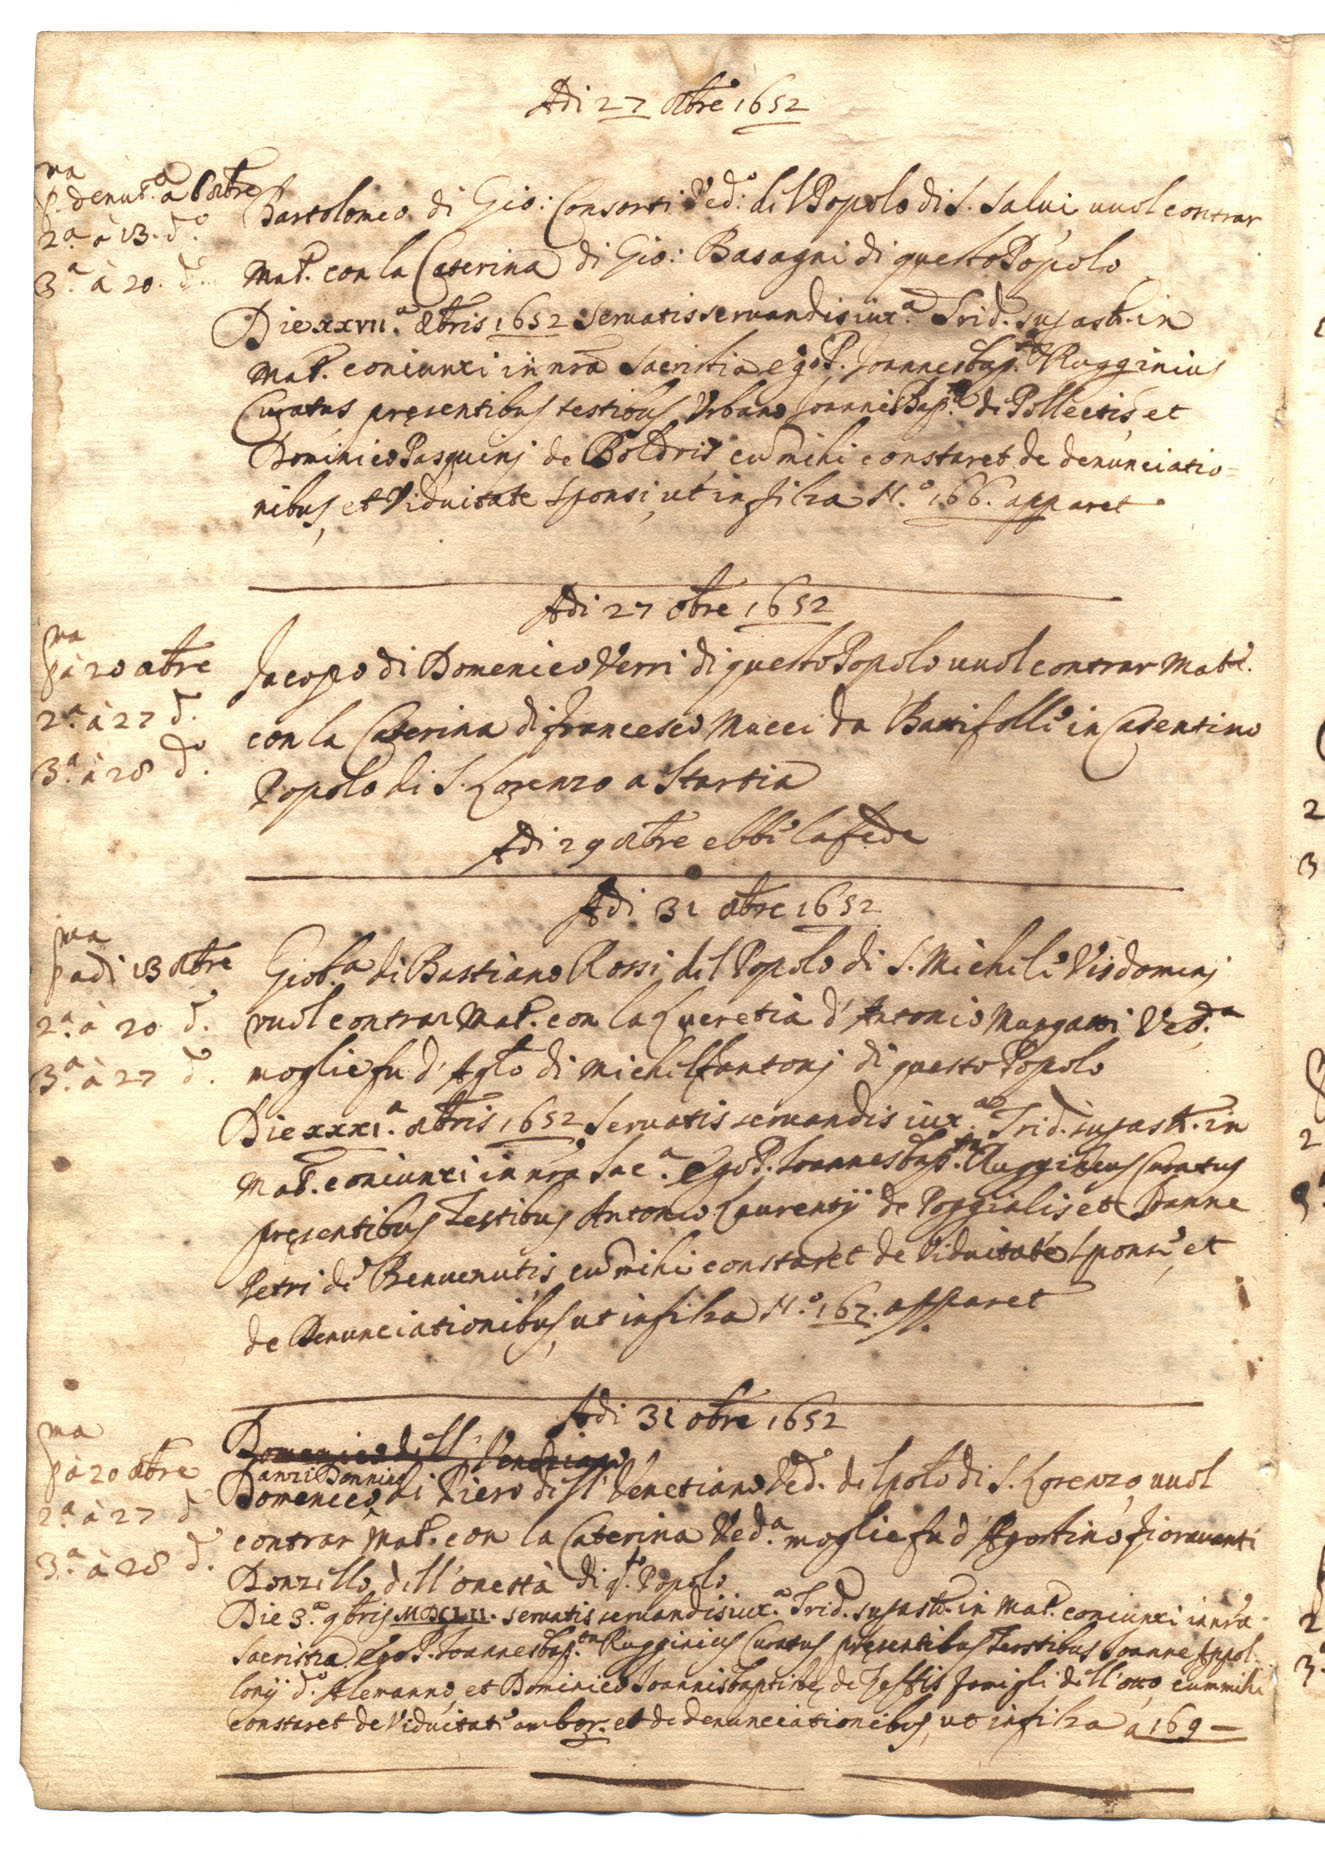 Adi 27 8bre 1652
p.ma denut.a à 6 8bre
2.a à 13. d.o
3.a à 20. d.o
Bartolomeo di Gio: Consorti Ved.o del Popolo di S. Salui uuol contrar
Mat. con la Caterina di Gio: Basagni di questo Popolo
Die xxvii.a 8bris 1652 seruatis seruandis iux.a Trid. sujast. in
Mat. coniunxi in nra Sacristia ego P. Joannesbap.ta Rugginius
Curatus pręsentibus testibus Vrbano Joannis Bap.tę de Pollectis, et
Dominico Pasquinj de Boldris, cũ mihi constaret de denunciatio=
nibus, et Viduitate Sponsi, ut in filza N.o 166. apparet
Adi 27 8bre 1652
p.ma à 20 8bre
2.a à 27 d.
3.a à 28 d.o
Jacopo di Domenico Verri di questo Popolo uuol contrar Mat.
con la Caterina di francesco Nucci da Battifolle in Casentino
Popolo di S. Lorenzo a Startia
Adi 29 8bre ebbi la fede
Adi 31 8bre 1652
p.ma adi 13 8bre
2.a à 20 d.
3.a à 27 d.
Giob.a di Bastiano Rossi del Popolo di S. Michele Visdominj
uuol contrar Mat. con la Lucretia d'Antonio Mangani Ved.a
moglie fu d'Ag.to di Michel fantonj di questo Popolo
Die xxxi.a 8bris 1652 Seruatis seruandis iux.a Trid. sujast. in
Mat. coniunxi in nra Sac.a Ego P. Joannesbap.ta Rugginius Curatus
pręsentibus Testibus Antonio Laurentij de Poggialis et Joanne
Petri de Benuenutis, cũ mihi constaret de Viduitate Sponsę, et
de Denunciationibus, ut in filza N.o 167. apparet
Adi 31 8bre 1652
p.ma à 20 8bre
2.a à 27 d.
3.a à 28 d.
Domenico dell' Venetiano
anzi Donnino
Domenico di Piero dell' Venetiano Ved. del polo di S. Lorenzo uuol
contrar Mat. con la Caterina Ved.a moglie fu d'Agostino fiorauanti
Donzello dell'onestà di q.to Popolo
Die 3.a 9bris MDCLII. seruatis seruandis iux.a Trid. sujast. in Mat. coniunxi in nra
Sacristia ego P. Joannesbap.ta Rugginius Curatus pręsentibus Testibus Joanne Appol-
lonij d.o Alemanno, et Dominico Joannisbaptistę de Zeffis famigli dell'otto, cum mihi
constaret de Viduitate ambor. et de denunciationibus, ut in filza a 169 —